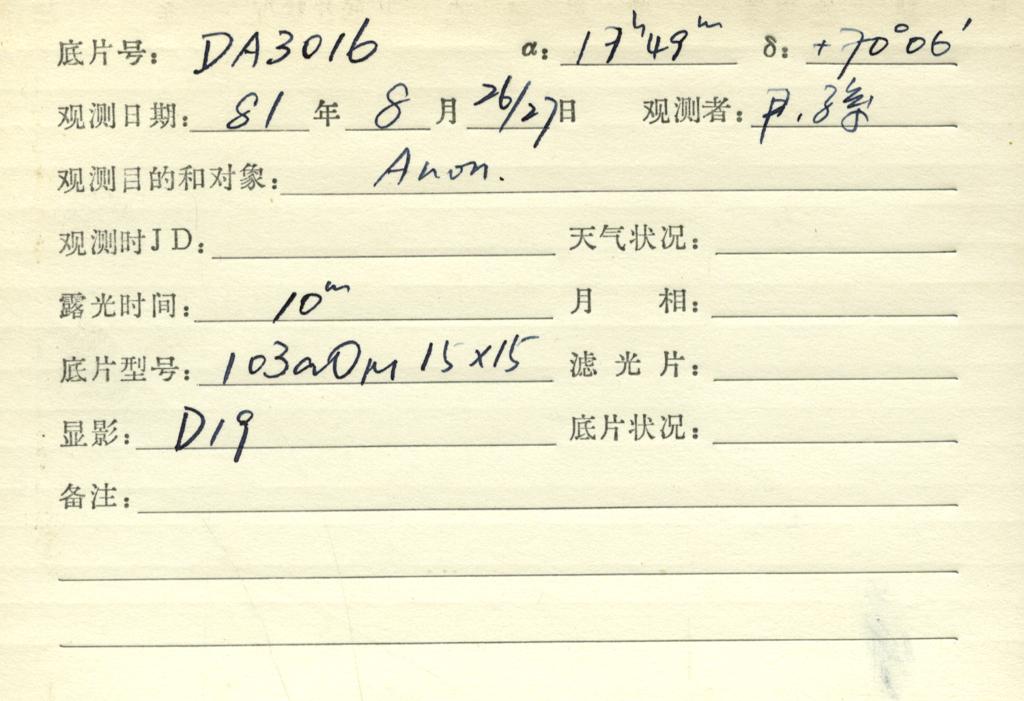 底片号: DA3016 α: 17ʰ49ᵐ δ: +70°06′
观测日期: 81 年 8 月 26/27日 观测者:
观测目的和对象: Anon.
观测时JD: 天气状况:
露光时间: 10ᵐ 月 相:
底片型号: 103aO 15×15 滤 光 片:
显影: D19 底片状况:
备注: